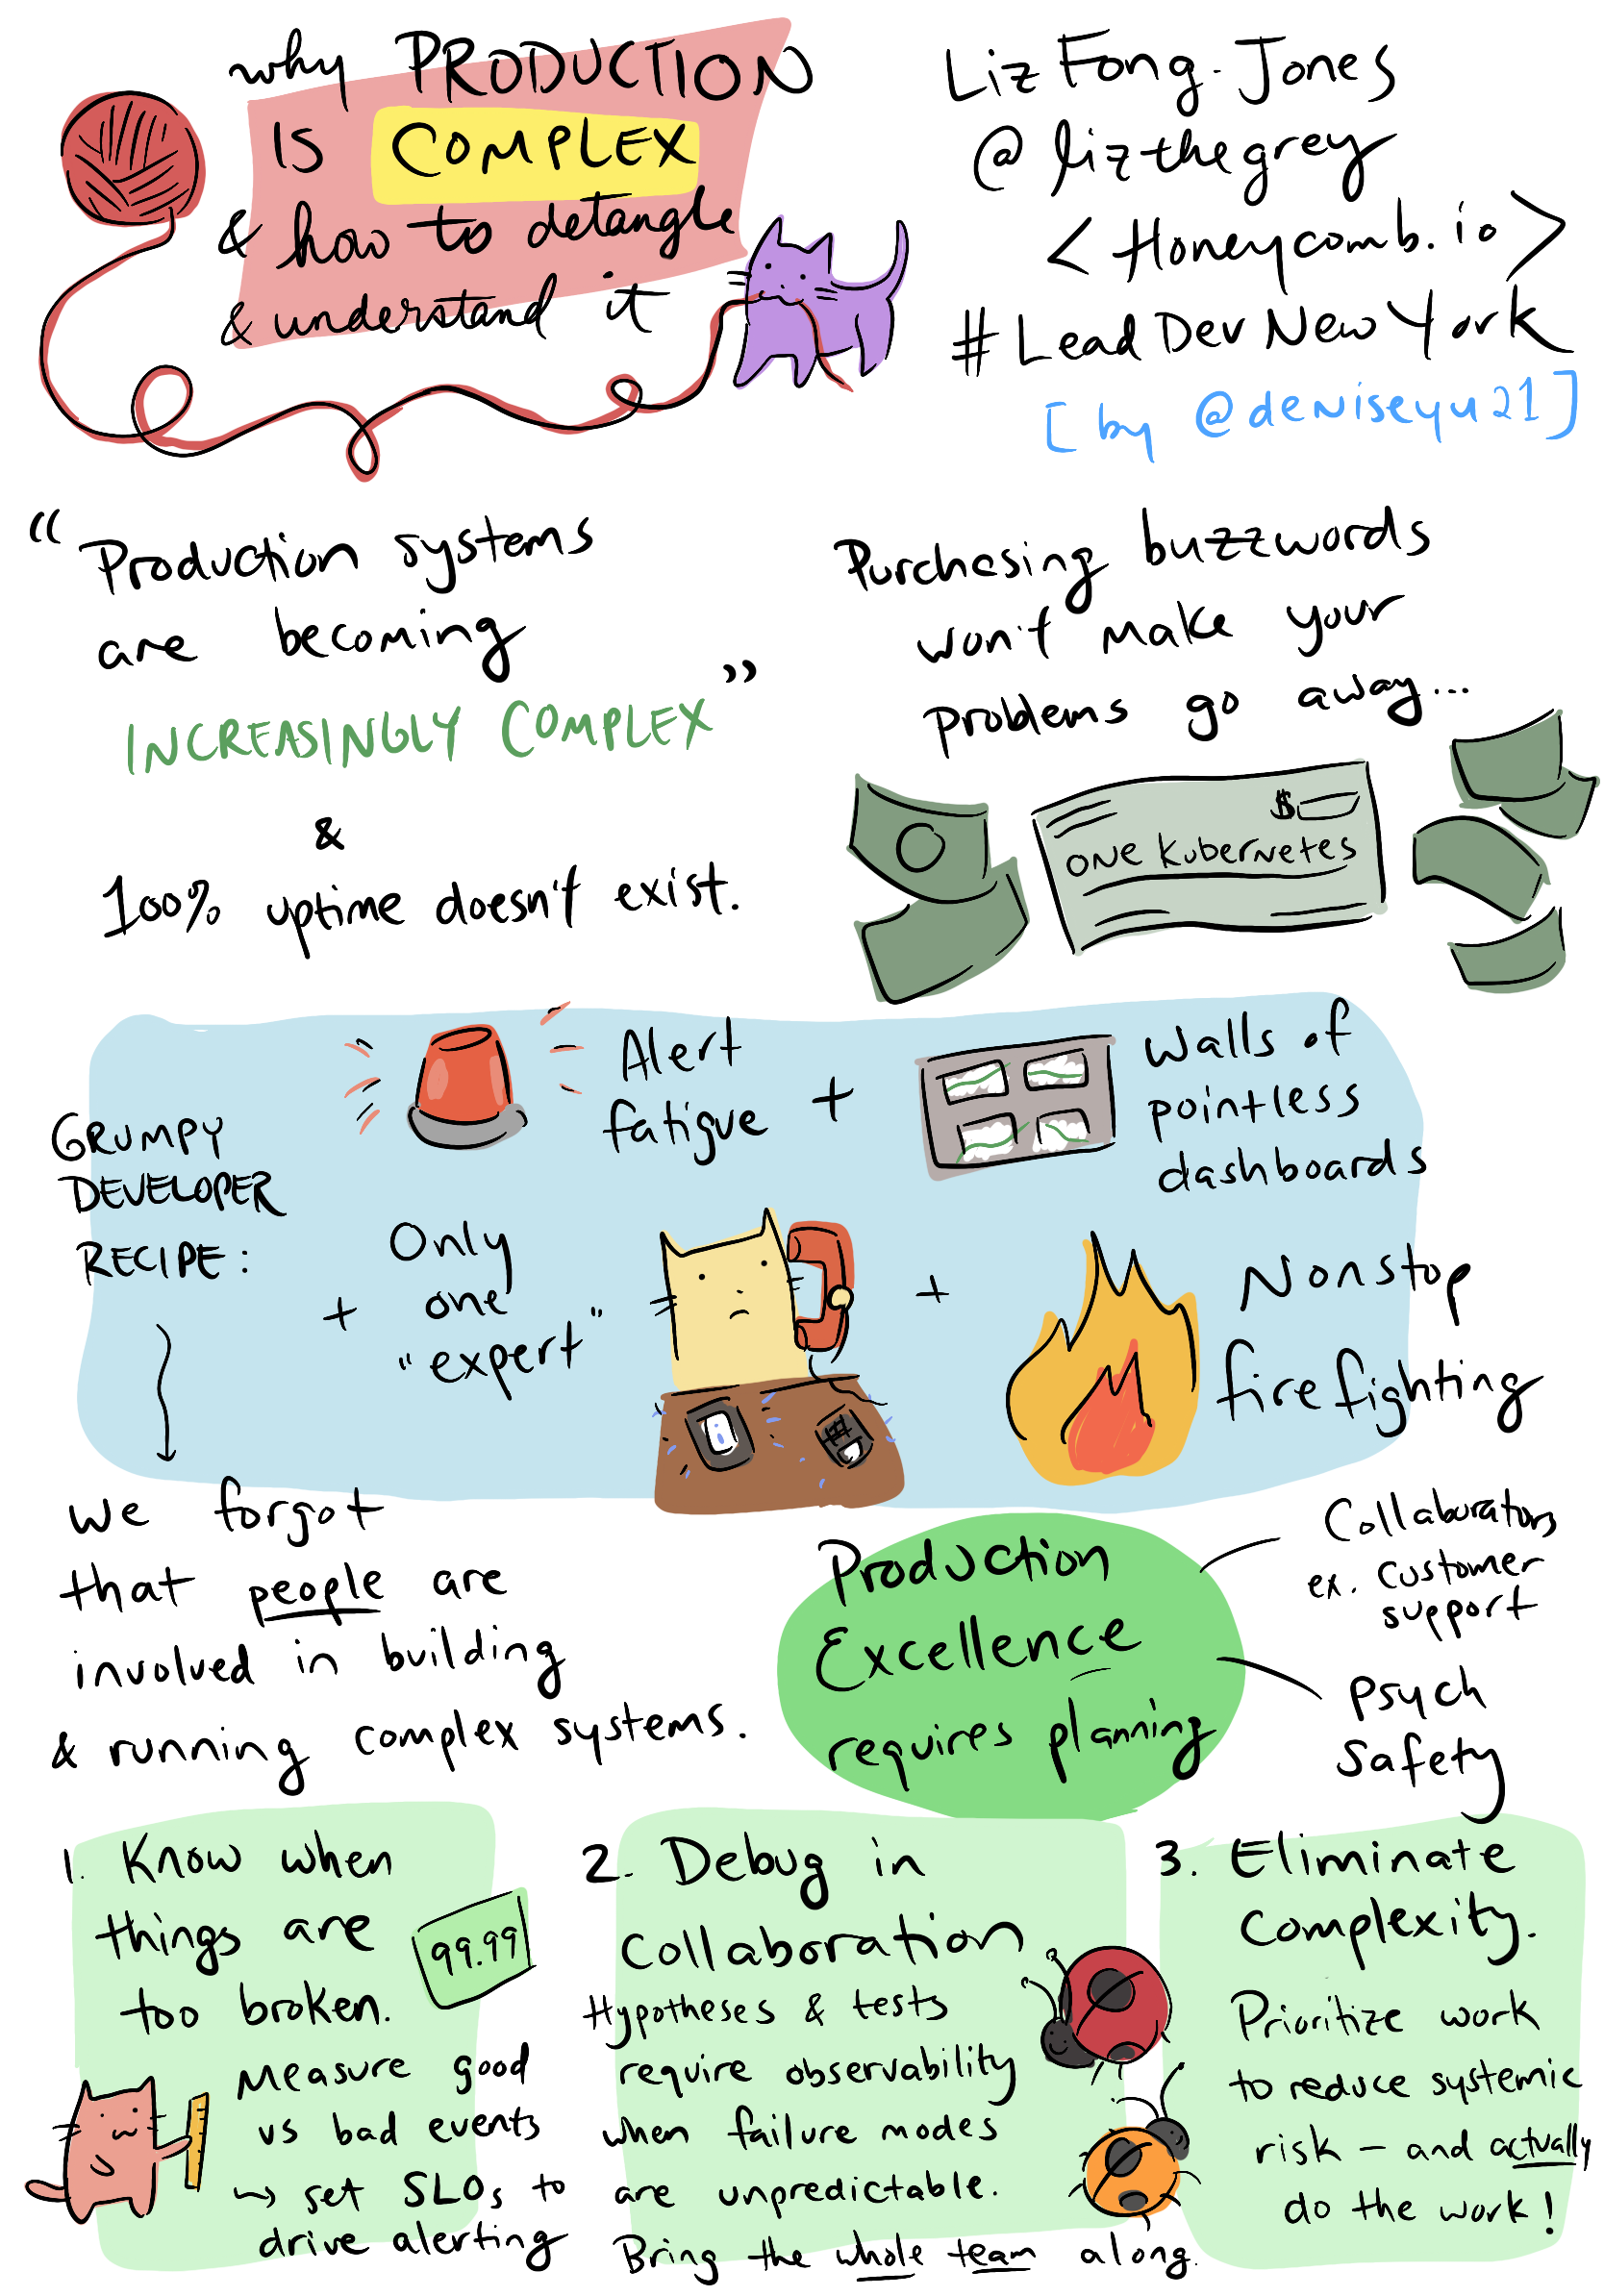 why PRODUCTION
IS COMPLEX
& how to detangle
& understand it
Liz Fong-Jones
@lizthegrey
<Honeycomb.io>
#LeadDevNewYork
[by @deniseyu21]
“Production systems
are becoming
INCREASINGLY COMPLEX”
&
100% uptime doesn't exist.
Purchasing buzzwords
won't make your
problems go away...
$
ONE KUBERNETES
GRUMPY
DEVELOPER
RECIPE:
Alert
fatigue
+
Walls of
pointless
dashboards
+
Only
one
"expert"
+
Nonstop
firefighting
we forgot
that people are
involved in building
& running complex systems.
Production
Excellence
requires planning
Collaborators
ex. customer
support
Psych
Safety
1. Know when
things are
too broken.
99.99
Measure good
vs bad events
↪ set SLOs to
drive alerting
2. Debug in
Collaboration
Hypotheses & tests
require observability
when failure modes
are unpredictable.
Bring the whole team along.
3. Eliminate
Complexity.
Prioritize work
to reduce systemic
risk – and actually
do the work!